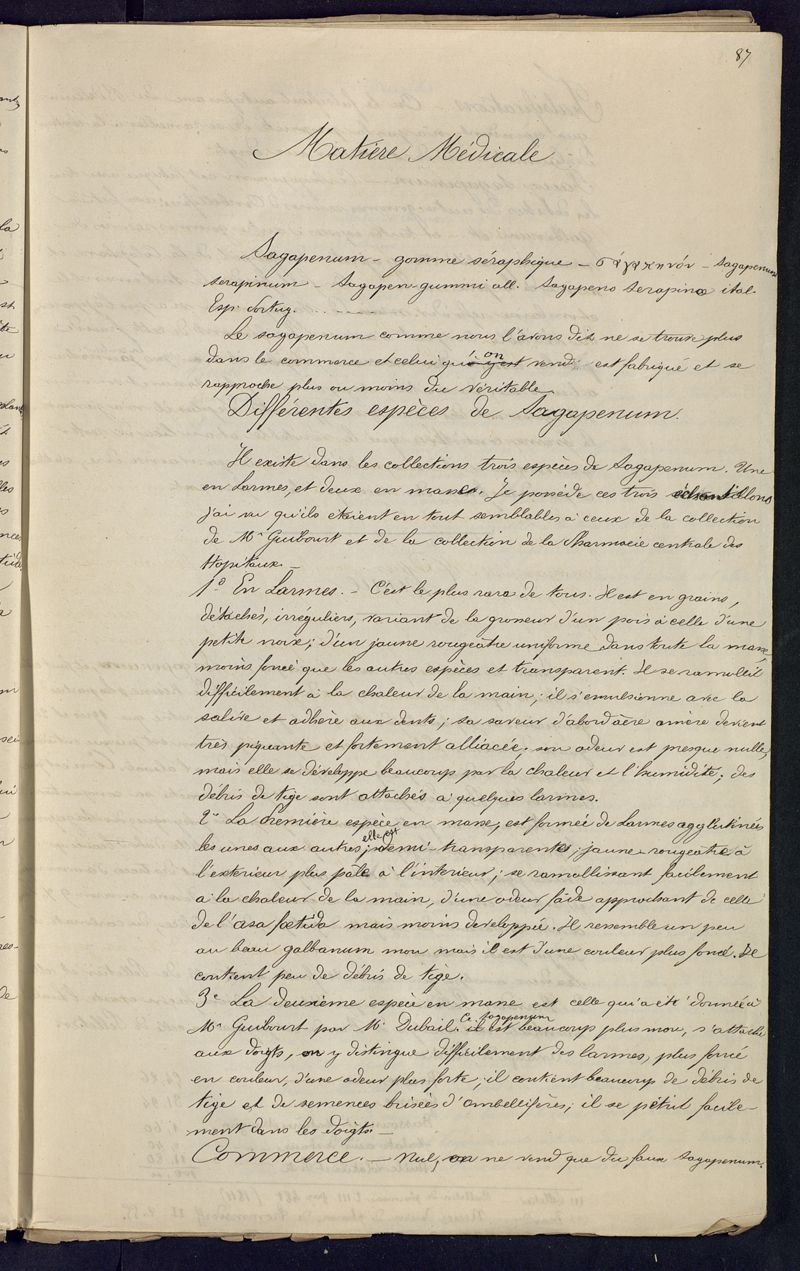 87
Matière Médicale
Sagapenum – gomme séraphique – σαγαπηνόν – Sagapenum
serapinum – Sagapen-gummi all. Sagapeno Serapino ital.
Esp. Portug. . . . . . .
Le sagapenum comme nous l'avons dit ne se trouve plus
dans le commerce et celui qu'on vend est fabriqué et se
rapproche plus ou moins du véritable
Différentes espèces de Sagapenum.
Il existe dans les collections trois espèces de Sagapenum. Une
en Larmes, et deux en masse. Je possède ces trois échantillons
j'ai vu qu'ils étaient en tout semblables à ceux de la collection
de Mr Guibourt et de la collection de la Pharmacie centrale des
Hôpitaux. –
1º En Larmes. – C'est le plus rare de tous. Il est en grains,
détachés, irréguliers, variant de la grosseur d'un pois à celle d'une
petite noix; d'un jaune rougeatre uniforme dans toute la masse,
moins foncé que les autres espèces et transparent. Il se ramollit
difficilement à la chaleur de la main; il s'emulsionne avec la
salive et adhère aux dents; sa saveur d'abord âcre amère devient
très piquante et fortement alliacée. son odeur est presque nulle,
mais elle se développe beaucoup par la chaleur et l'humidité; des
débris de tige sont attachés à quelques larmes.
2º La Première espèce en masse, est formée de Larmes agglutinées
les unes aux autres; elle est demi-transparente; jaune-rougeatre à
l'exterieur plus pâle à l'interieur; se ramollissant facilement
à la chaleur de la main, d'une odeur fade approchant de celle
de l'asa fœtida mais moins developpée. Il ressemble un peu
au beau galbanum mou mais il est d'une couleur plus foncé. Il
contient peu de débris de tige.
3º La deuxième espèce en masse est celle qui a été donnée à
Mr Guibourt par Mr Dubail. Ce Sagapenum est beaucoup plus mou, s'attache
aux doigts, on y distingue difficilement des larmes, plus foncé
en couleur, d'une odeur plus forte; il contient beaucoup de débris de
tige et de semences brisées d'ombellifères; il se pétrit facile-
ment dans les doigts. –
Commerce. – Nul, on ne vend que du faux Sagapenum.